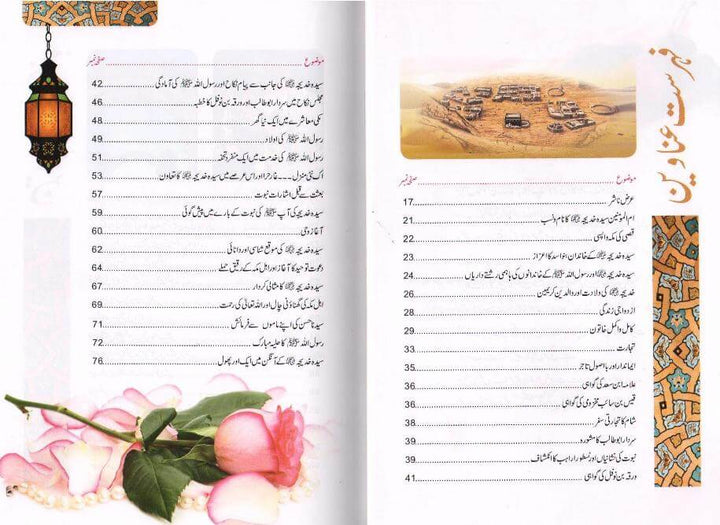 فہرست عناوین
موضوع ........ صفحہ نمبر
عرض ناشر ........ 17
ام المؤمنین سیدہ خدیجہ رضی اللہ عنہا کا نام و نسب ........ 21
قصی کی مکہ واپسی ........ 22
سیدہ خدیجہ رضی اللہ عنہا کے خاندان بنو اسد کا اعزاز ........ 23
سیدہ خدیجہ رضی اللہ عنہا اور رسول اللہ ﷺ کے خاندانوں کی باہمی رشتے داریاں ........ 24
خدیجہ رضی اللہ عنہا کی ولادت اور والدین کریمین ........ 26
ازدواجی زندگی ........ 28
کامل و اکمل خاتون ........ 29
تجارت ........ 33
ایماندار اور با اصول تاجر ........ 35
علامہ ابن سعد کی گواہی ........ 36
قیس بن سائب مخزومی کی گواہی ........ 36
شام کا تجارتی سفر ........ 38
سردار ابو طالب کا مشورہ ........ 39
نبوت کی نشانیاں اور نسطورا راہب کا انکشاف ........ 39
ورقہ بن نوفل کی گواہی ........ 41
موضوع ........ صفحہ نمبر
سیدہ خدیجہ رضی اللہ عنہا کی جانب سے پیام نکاح اور رسول اللہ ﷺ کی آمادگی ........ 42
مجلس نکاح میں سردار ابو طالب اور ورقہ بن نوفل کا خطبہ ........ 46
مکی معاشرے میں ایک نیا گھر ........ 48
رسول اللہ ﷺ کی اولاد ........ 49
رسول اللہ ﷺ کی خدمت میں ایک منفرد تحفہ ........ 51
اک نئی منزل۔۔۔ غار حرا اور اس عرصے میں سیدہ خدیجہ رضی اللہ عنہا کا تعاون ........ 53
بعثت سے قبل اشارات نبوت ........ 57
سیدہ خدیجہ رضی اللہ عنہا کی آپ ﷺ کی نبوت کے بارے میں پیش گوئی ........ 59
آغاز وحی ........ 60
سیدہ خدیجہ رضی اللہ عنہا کی موقع شناسی اور دانائی ........ 62
دعوت توحید کا آغاز اور اہل مکہ کے رقیق حملے ........ 64
سیدہ خدیجہ رضی اللہ عنہا کا مثالی کردار ........ 67
اہل مکہ کی گھناؤنی چال اور اللہ تعالیٰ کی رحمت ........ 69
سیدنا حسن کی اپنے ماموں سے فرمائش ........ 71
رسول اللہ ﷺ کا حلیہ مبارک ........ 72
سیدہ خدیجہ رضی اللہ عنہا کے آنگن میں ایک اور پھول ........ 76